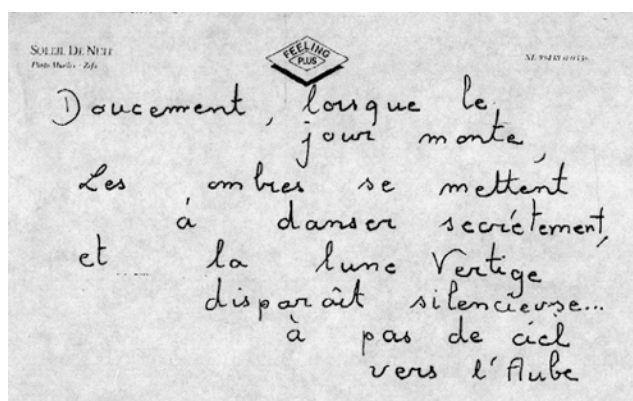 SOLEIL DE NUIT
FEELING
PLUS
Doucement, lorsque le
jour monte,
Les ombres se mettent
à danser secrétement,
et la lune Vertige
disparaît silencieuse...
à pas de ciel
vers l'Aube